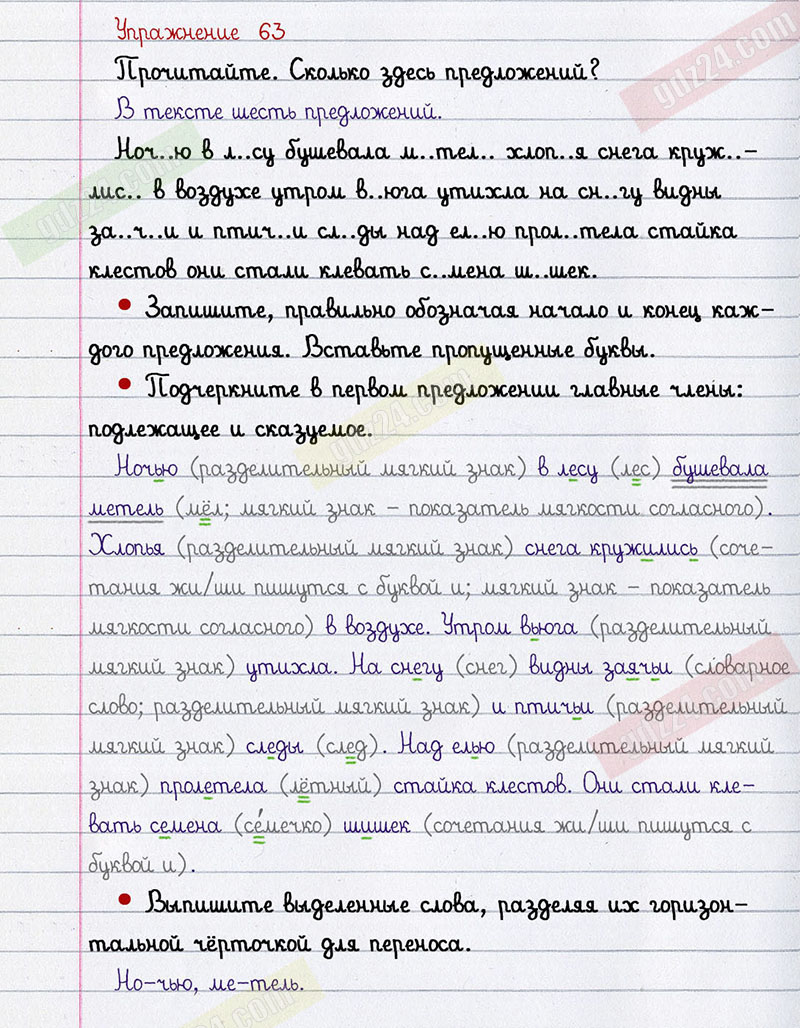 Упражнение 63
Прочитайте. Сколько здесь предложений?
В тексте шесть предложений.
Ноч..ю в л..су бушевала м..тел.. хлоп..я снега круж..-
лис.. в воздухе утром в..юга утихла на сн..гу видны
за..ч..и и птич..и сл..ды над ел..ю прол..тела стайка
клестов они стали клевать с..мена ш..шек.
• Запишите, правильно обозначая начало и конец каж-
дого предложения. Вставьте пропущенные буквы.
• Подчеркните в первом предложении главные члены:
подлежащее и сказуемое.
Ночью (разделительный мягкий знак) в лесу (лес) бушевала
метель (мёл; мягкий знак – показатель мягкости согласного).
Хлопья (разделительный мягкий знак) снега кружились (соче-
тания жи/ши пишутся с буквой и; мягкий знак – показатель
мягкости согласного) в воздухе. Утром вьюга (разделительный
мягкий знак) утихла. На снегу (снег) видны заячьи (словарное
слово; разделительный мягкий знак) и птичьи (разделительный
мягкий знак) следы (след). Над елью (разделительный мягкий
знак) пролетела (лётный) стайка клестов. Они стали кле-
вать семена (се́мечко) шишек (сочетания жи/ши пишутся с
буквой и).
• Выпишите выделенные слова, разделяя их горизон-
тальной чёрточкой для переноса.
Но-чью, ме-тель.
gdz24.com
gdz24.com
gdz24.com
gdz24.com
gdz24.com